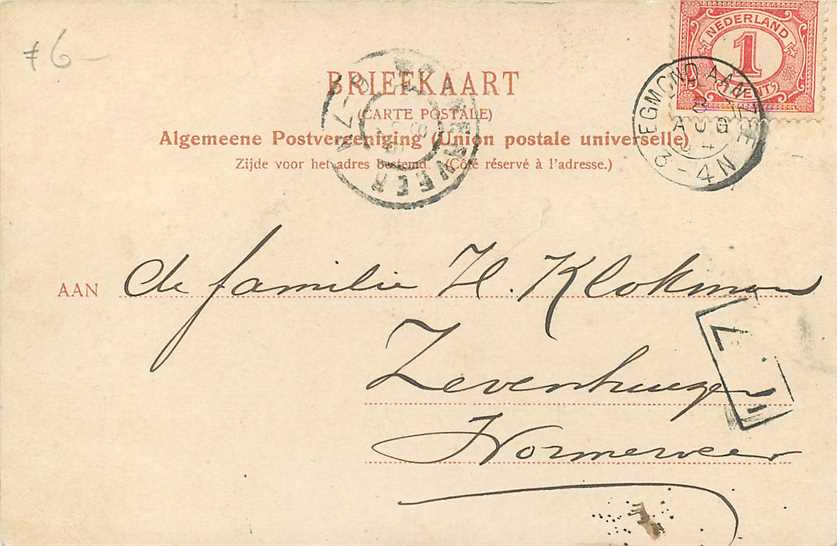 f 6-
NEDERLAND
1
CENT
BRIEFKAART
(CARTE POSTALE)
Algemeene Postvereeniging (Union postale universelle)
Zijde voor het adres bestemd. (Côté réservé à l'adresse.)
EGMOND AAN ZEE
8 AUG 04
3-4N
WORMERVEER
AAN de familie H. Klokman
Zevenhuizen
Wormerveer